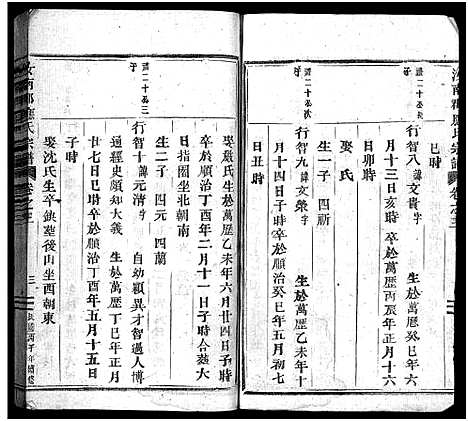 汝南郡應氏宗譜 卷之三
巳時
廷二十公次
子
行智八 諱文貴 字 生於萬歷癸巳年六
月十三日亥時卒於萬歷丙辰年正月十六
日卯時
子
行智九 諱文榮 字 生於萬歷乙未年十
月十四日子時卒於順治癸巳年五月初七
日丑時
娶氏
生一子 四祈
娶嚴氏生於萬歷乙未年六月廿四日子時
卒於順治丁酉年二月十一日子時合葬大
日指園坐北朝南
生二子 四元 四蘭
廷二十公三
子
行智十 諱元清 字 自幼穎異才智過人博
通經史頗知大義 生於萬歷丁巳年正月
廿七日巳時卒於順治丁酉年五月十五日
子時
娶沈氏生卒缺墓後山坐西朝東
汝南郡應氏宗譜 卷之三 三